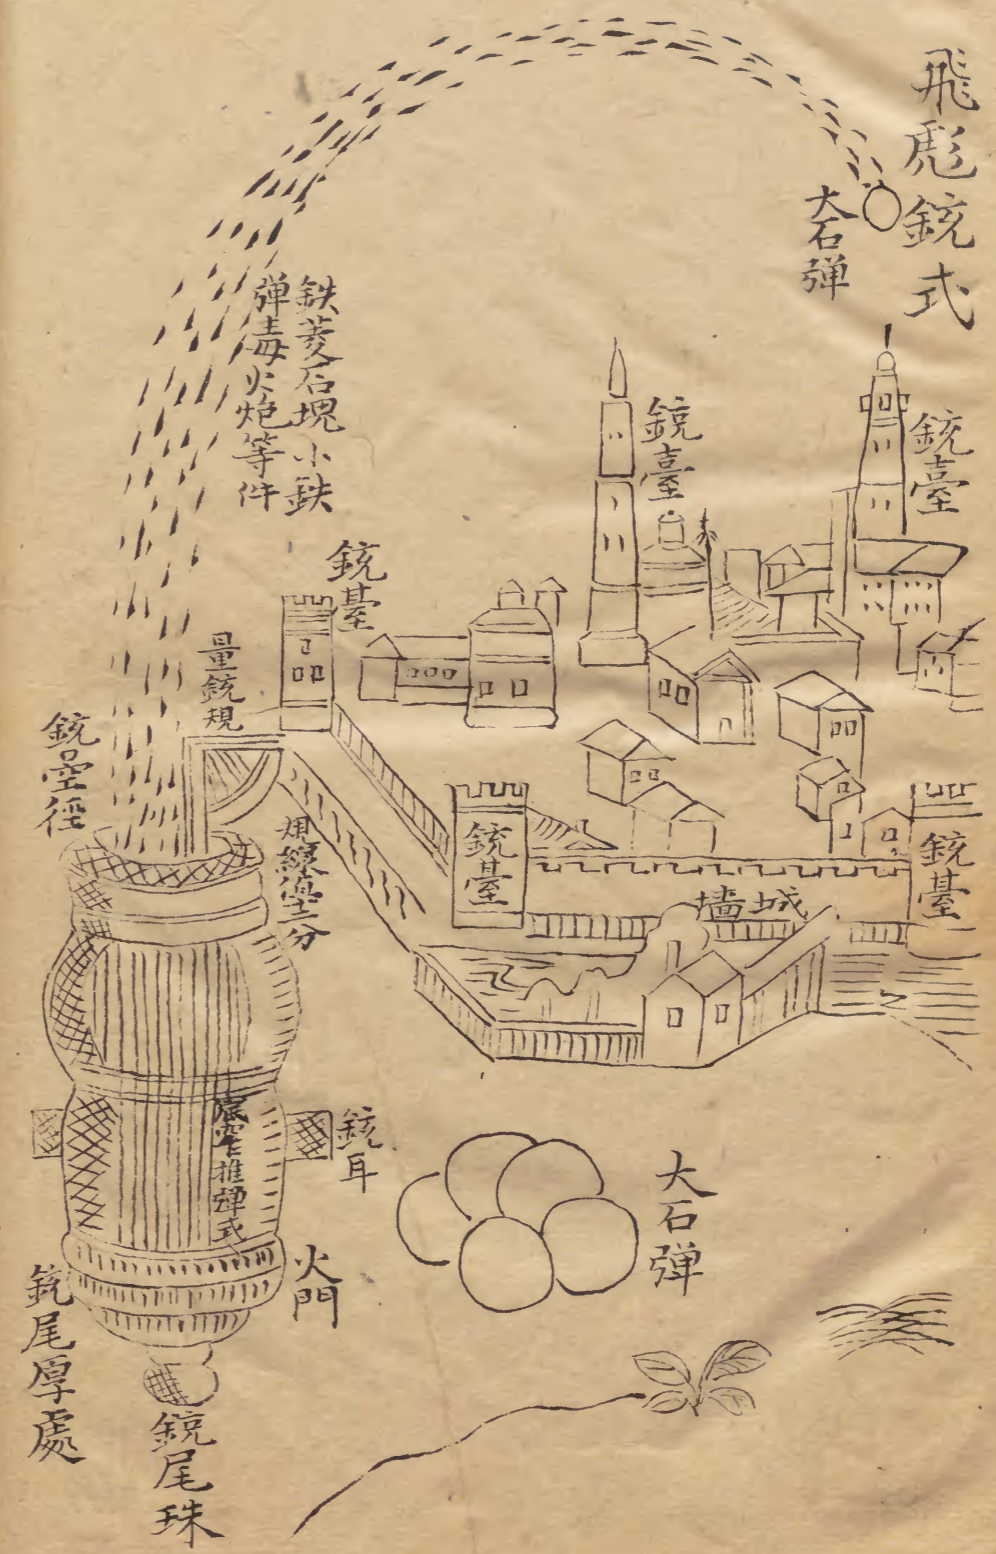 飛彪銃式
大石弹
銃臺
銃臺
鉄菱石塊小鉄
弹毒火炮等件
銃臺
量銃規
銃空徑
用線墜二分
銃臺
銃臺
城墻
推弹式
銃耳
大石弹
火門
銃尾厚處
銃尾珠